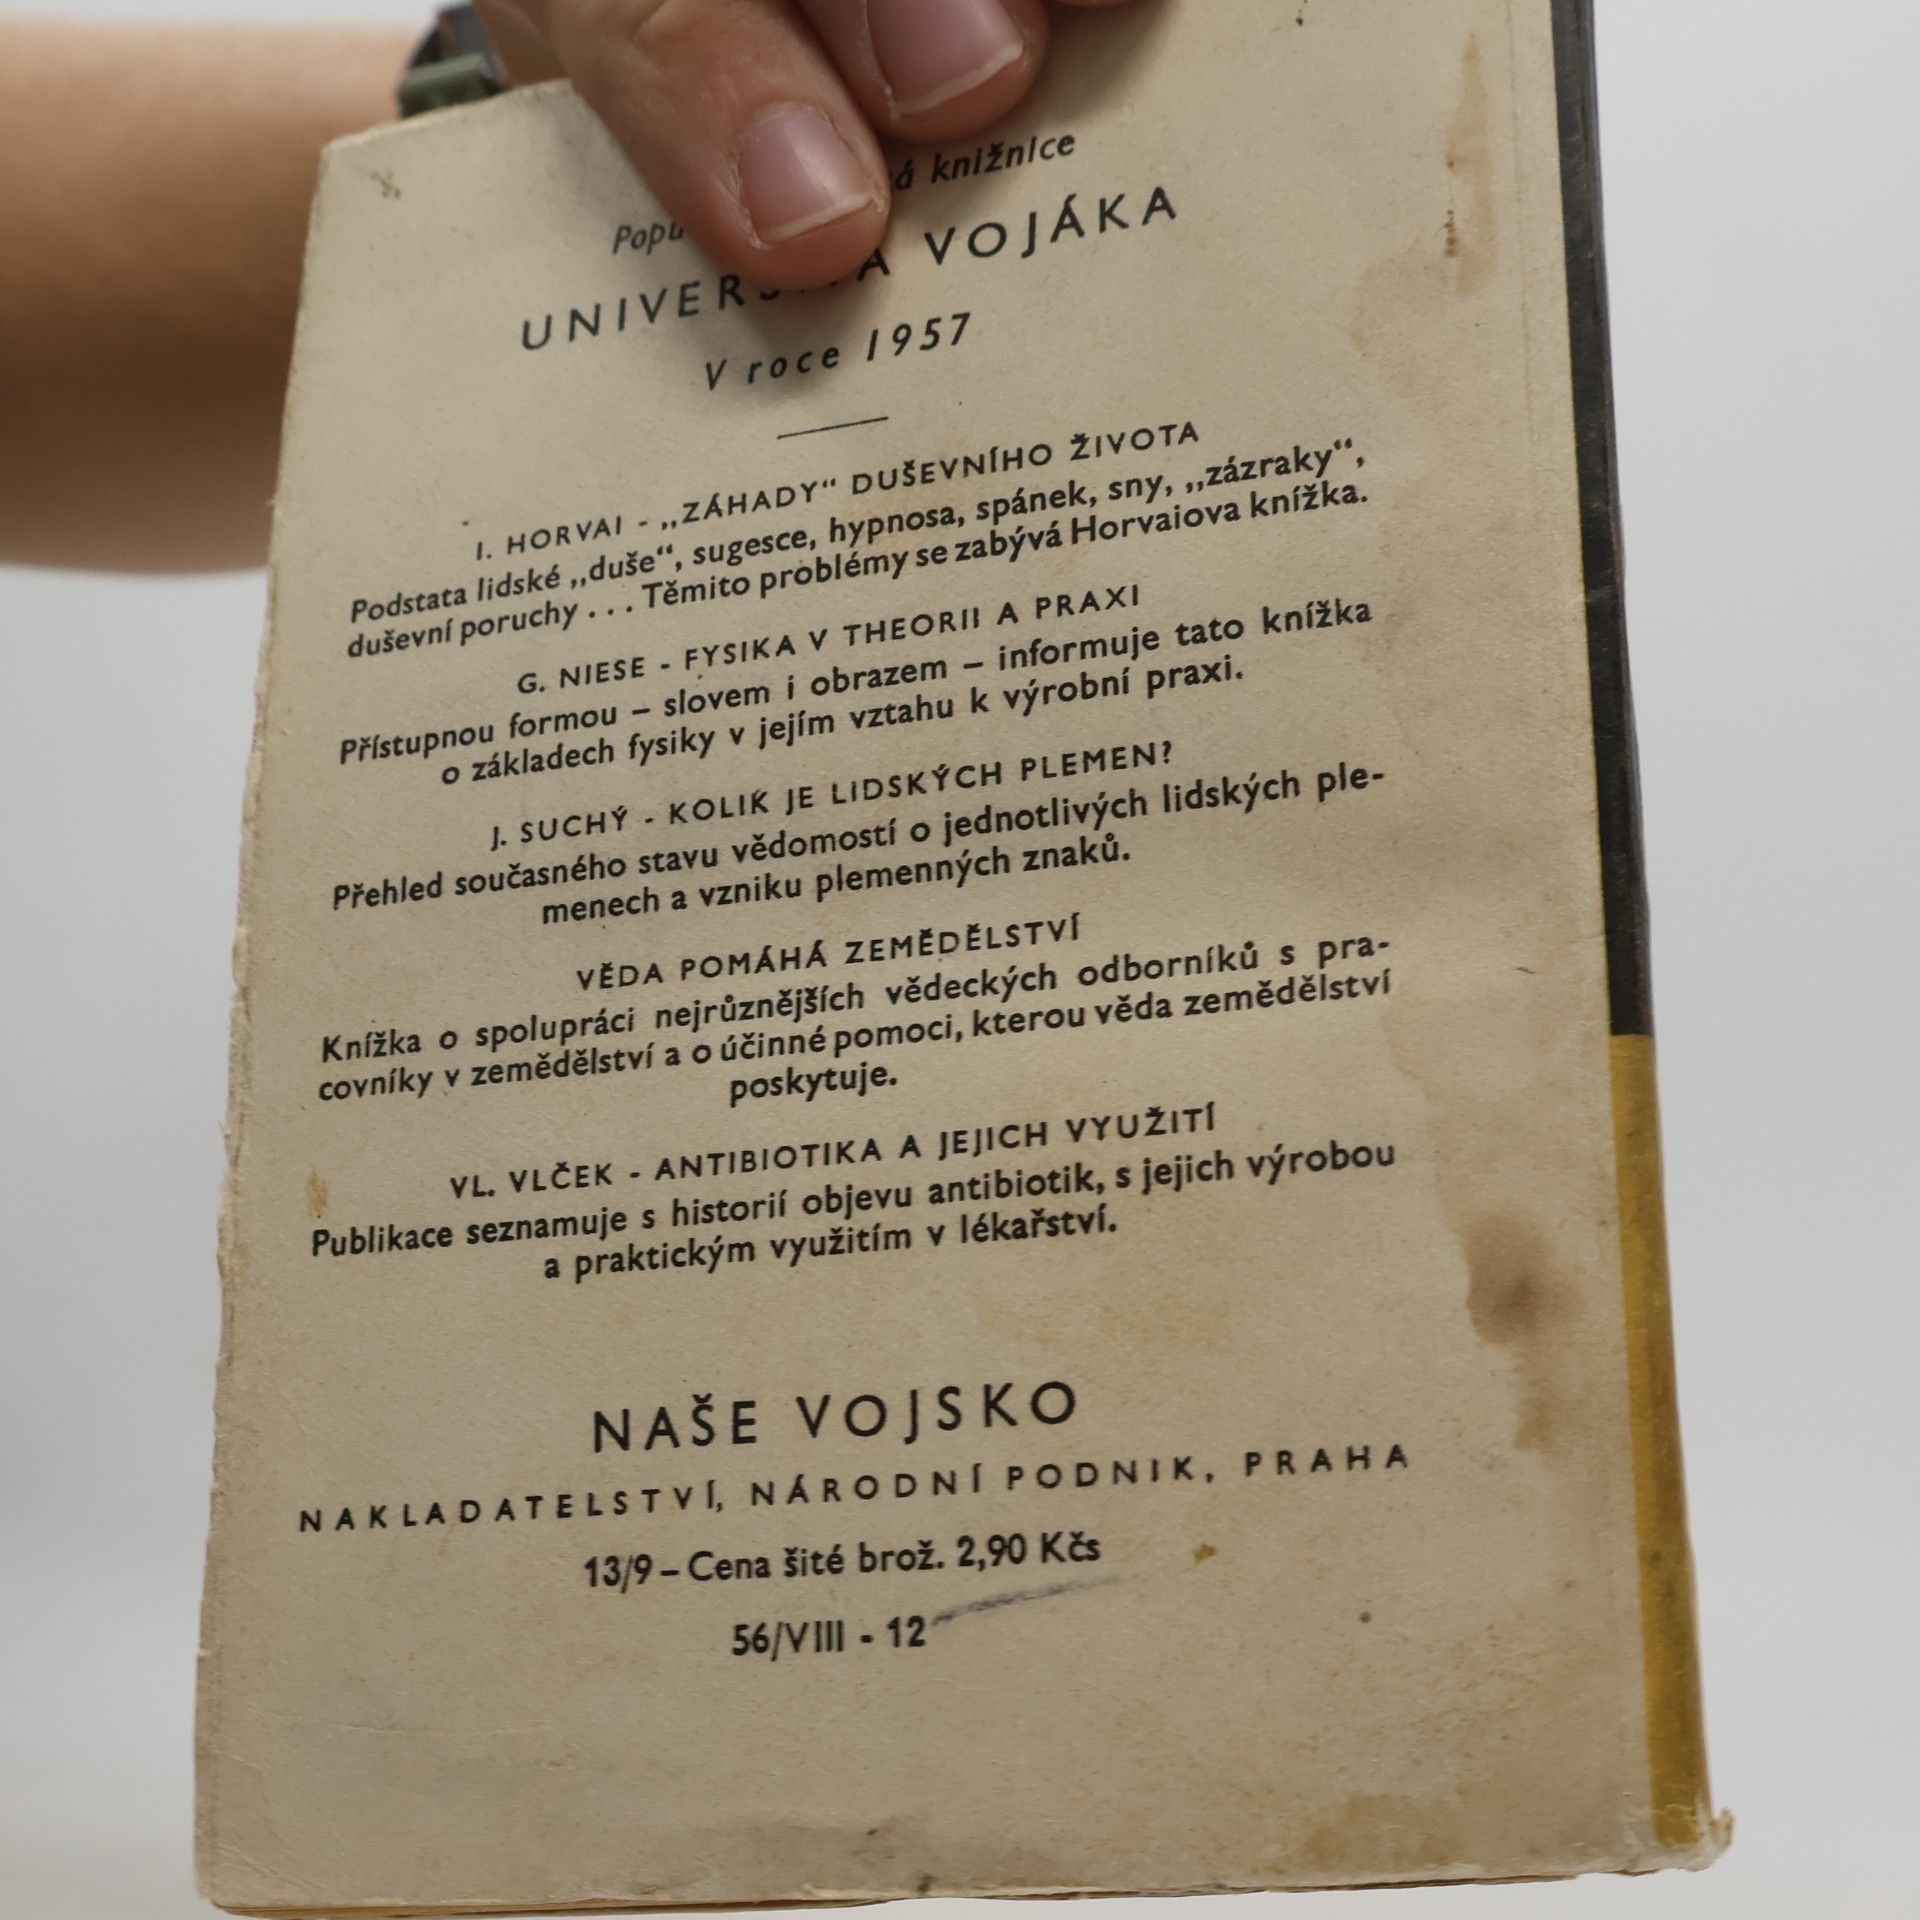 á knižnice
VOJÁKA
V roce 1957
I. HORVAI - „ZÁHADY“ DUŠEVNÍHO ŽIVOTA
Podstata lidské „duše“, sugesce, hypnosa, spánek, sny, „zázraky“,
duševní poruchy . . . Těmito problémy se zabývá Horvaiova knížka.
G. NIESE - FYSIKA V THEORII A PRAXI
Přístupnou formou – slovem i obrazem – informuje tato knížka
o základech fysiky v jejím vztahu k výrobní praxi.
J. SUCHÝ - KOLIK JE LIDSKÝCH PLEMEN?
Přehled současného stavu vědomostí o jednotlivých lidských ple-
menech a vzniku plemenných znaků.
VĚDA POMÁHÁ ZEMĚDĚLSTVÍ
Knížka o spolupráci nejrůznějších vědeckých odborníků s pra-
covníky v zemědělství a o účinné pomoci, kterou věda zemědělství
poskytuje.
VL. VLČEK - ANTIBIOTIKA A JEJICH VYUŽITÍ
Publikace seznamuje s historií objevu antibiotik, s jejich výrobou
a praktickým využitím v lékařství.
NAŠE VOJSKO
NAKLADATELSTVÍ, NÁRODNÍ PODNIK, PRAHA
13/9 – Cena šité brož. 2,90 Kčs
56/VIII - 12